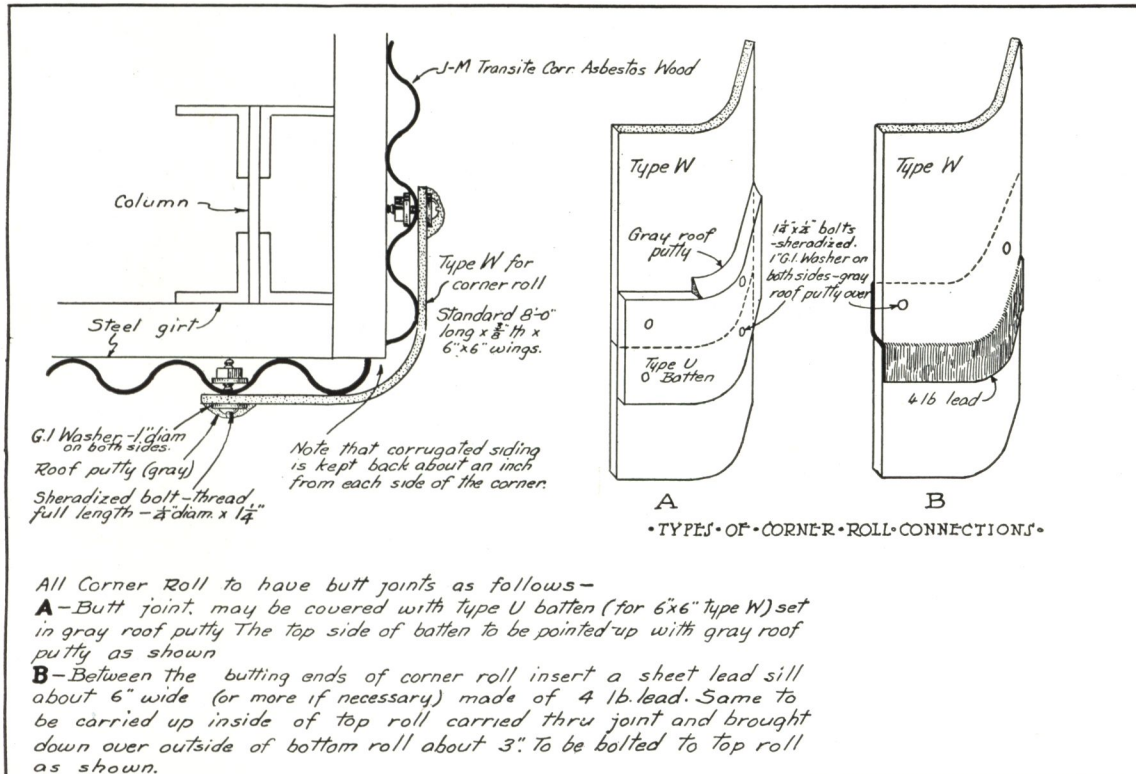 J-M Transite Corr. Asbestos Wood
Column
Steel girt
Type W for
corner roll
Standard 8'-0"
long x 3/8" th x
6"x6" wings.
G.I Washer-1" diam
on both sides.
Roof putty (gray)
Sheradized bolt-thread
full length-1/4" diam. x 1 1/4"
Note that corrugated siding
is kept back about an inch
from each side of the corner.
Type W
Gray roof
putty
Type U
Batten
A
1 1/4" x 1/4" bolts
-sheradized.
1" G.I. Washer on
both sides-gray
roof putty over
Type W
4 lb lead
B
•TYPES•OF•CORNER•ROLL•CONNECTIONS•
All Corner Roll to have butt joints as follows-
A-Butt joint. may be covered with Type U batten (for 6"x6" Type W) set
in gray roof putty The top side of batten to be pointed-up with gray roof
putty as shown
B-Between the butting ends of corner roll insert a sheet lead sill
about 6" wide (or more if necessary) made of 4 lb. lead. Same to
be carried up inside of top roll carried thru joint and brought
down over outside of bottom roll about 3". To be bolted to top roll
as shown.